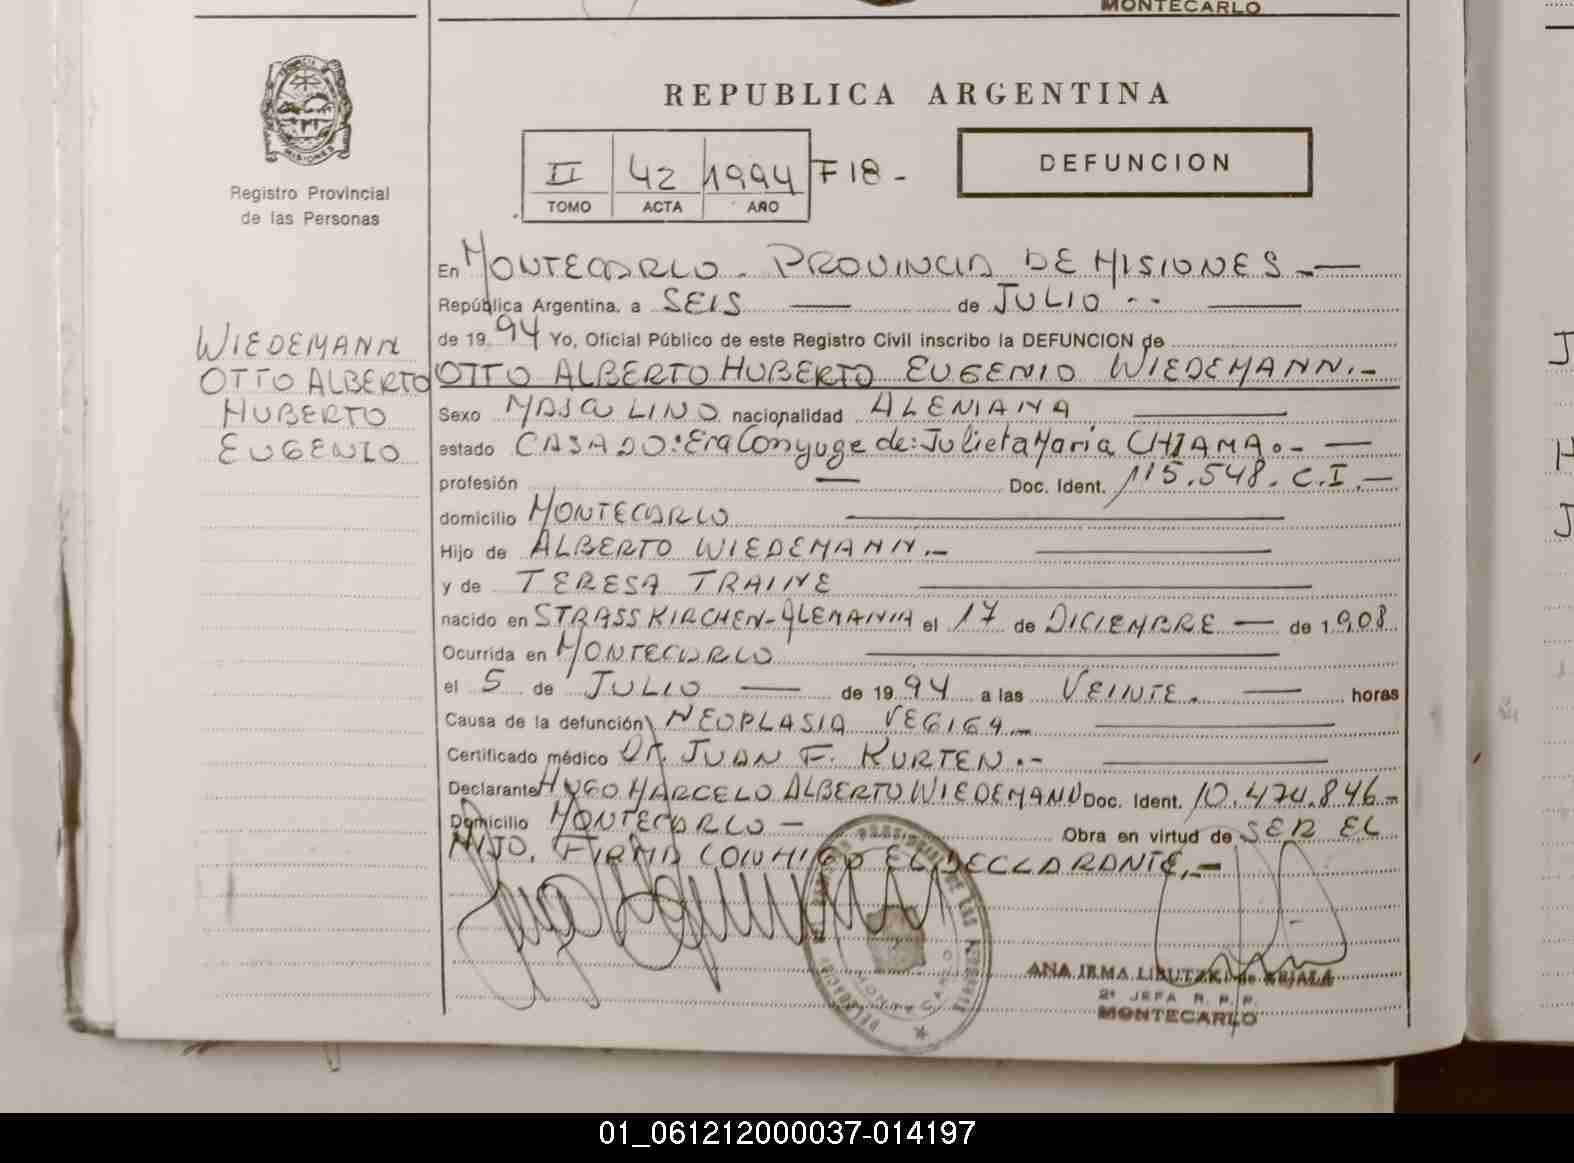 MONTECARLO
MISIONES
Registro Provincial
de las Personas
WIEDEMANN
OTTO ALBERTO
HUBERTO
EUGENIO
REPUBLICA ARGENTINA
II 42 1994 F18 -
TOMO ACTA AÑO
DEFUNCION
En MONTECARLO. PROVINCIA DE MISIONES.-
República Argentina, a SEIS de JULIO --
de 1994 Yo, Oficial Público de este Registro Civil inscribo la DEFUNCION de
OTTO ALBERTO HUBERTO EUGENIO WIEDEMANN.-
Sexo MASCULINO nacionalidad ALEMANA
estado CASADO: Era Conyuge de: Julieta Maria CHIAMA.-
profesión — Doc. Ident. 115.548. C.I.-
domicilio MONTECARLO
Hijo de ALBERTO WIEDEMANN.-
y de TERESA TRAINE
nacido en STRASSKIRCHEN-ALEMANIA el 17 de DICIEMBRE — de 1.908
Ocurrida en MONTECARLO
el 5 de JULIO — de 1994 a las VEINTE. — horas
Causa de la defunción NEOPLASIA VEGIGA.-
Certificado médico Dr. JUAN F. KURTEN.-
Declarante HUGO MARCELO ALBERTO WIEDEMANN Doc. Ident. 10.474.846.-
Domicilio MONTECARLO - Obra en virtud de SER EL
HIJO. FIRMA CONMIGO EL DECLARANTE.-
ANA IRMA
2ª JEFA R. P. P.
MONTECARLO
01_061212000037-014197